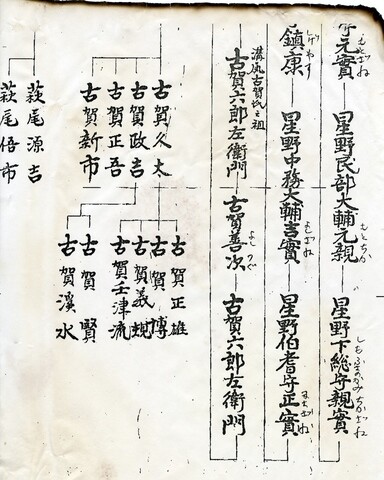 守元實
星野民部大輔元親
もとちか
星野下総守親實
しもふさのかみちかざね
鎮康
しげやす
星野中務大輔吉實
星野伯耆守正實
古賀氏之祖
古賀六郎左衛門
古賀善次
よしつぐ
古賀六郎左衛門
古賀久太
古賀政吉
古賀正吾
古賀新市
古賀正雄
古賀博
古賀義規
古賀壬津流
古賀賢
古賀溪水
萩尾源吉
萩尾悟市